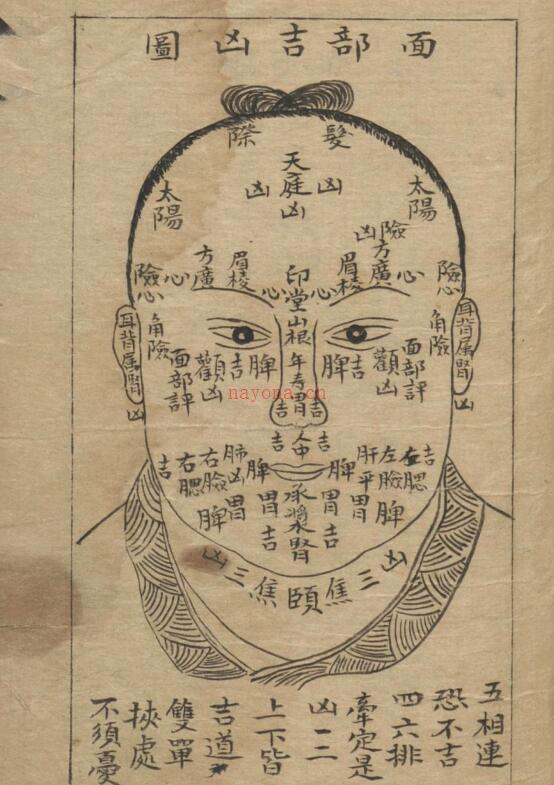 面部吉凶圖
髮際
天庭
凶
凶
凶
太陽
太陽
險
凶
方廣
方廣
眉棱
眉棱
心
心
心
心
險
險
心
心
印堂
山根
年壽
胃
吉
吉
角險
角險
耳背屬腎
凶
耳背屬腎
凶
面部評
面部評
觀凶
觀凶
吉
脾
脾
吉
nayona.cn
吉
人中
吉
吉
右腮
右臉
脾
肺凶
胃
脾
胃
吉
承漿
水
腎
脾
胃
吉
肝平
胃
左臉
脾
左腮
吉
凶
三焦
頤
三焦
凶
五相連
恐不吉
四六排
牽定是
凶一二
上下皆
吉道
雙單
挾處
不須憂